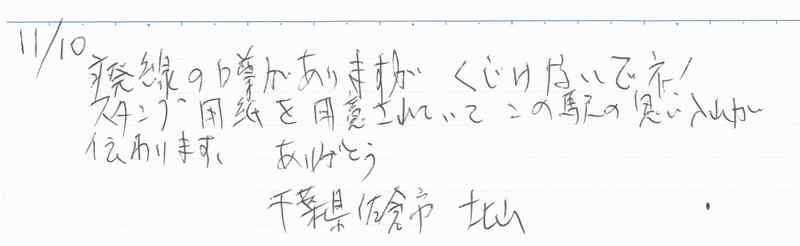 11/10
廃線の噂がありますが くじけないでネ!
スタンプ用紙を用意されていて この駅の思い入れが
伝わります。 ありがとう
千葉県佐倉市 北山